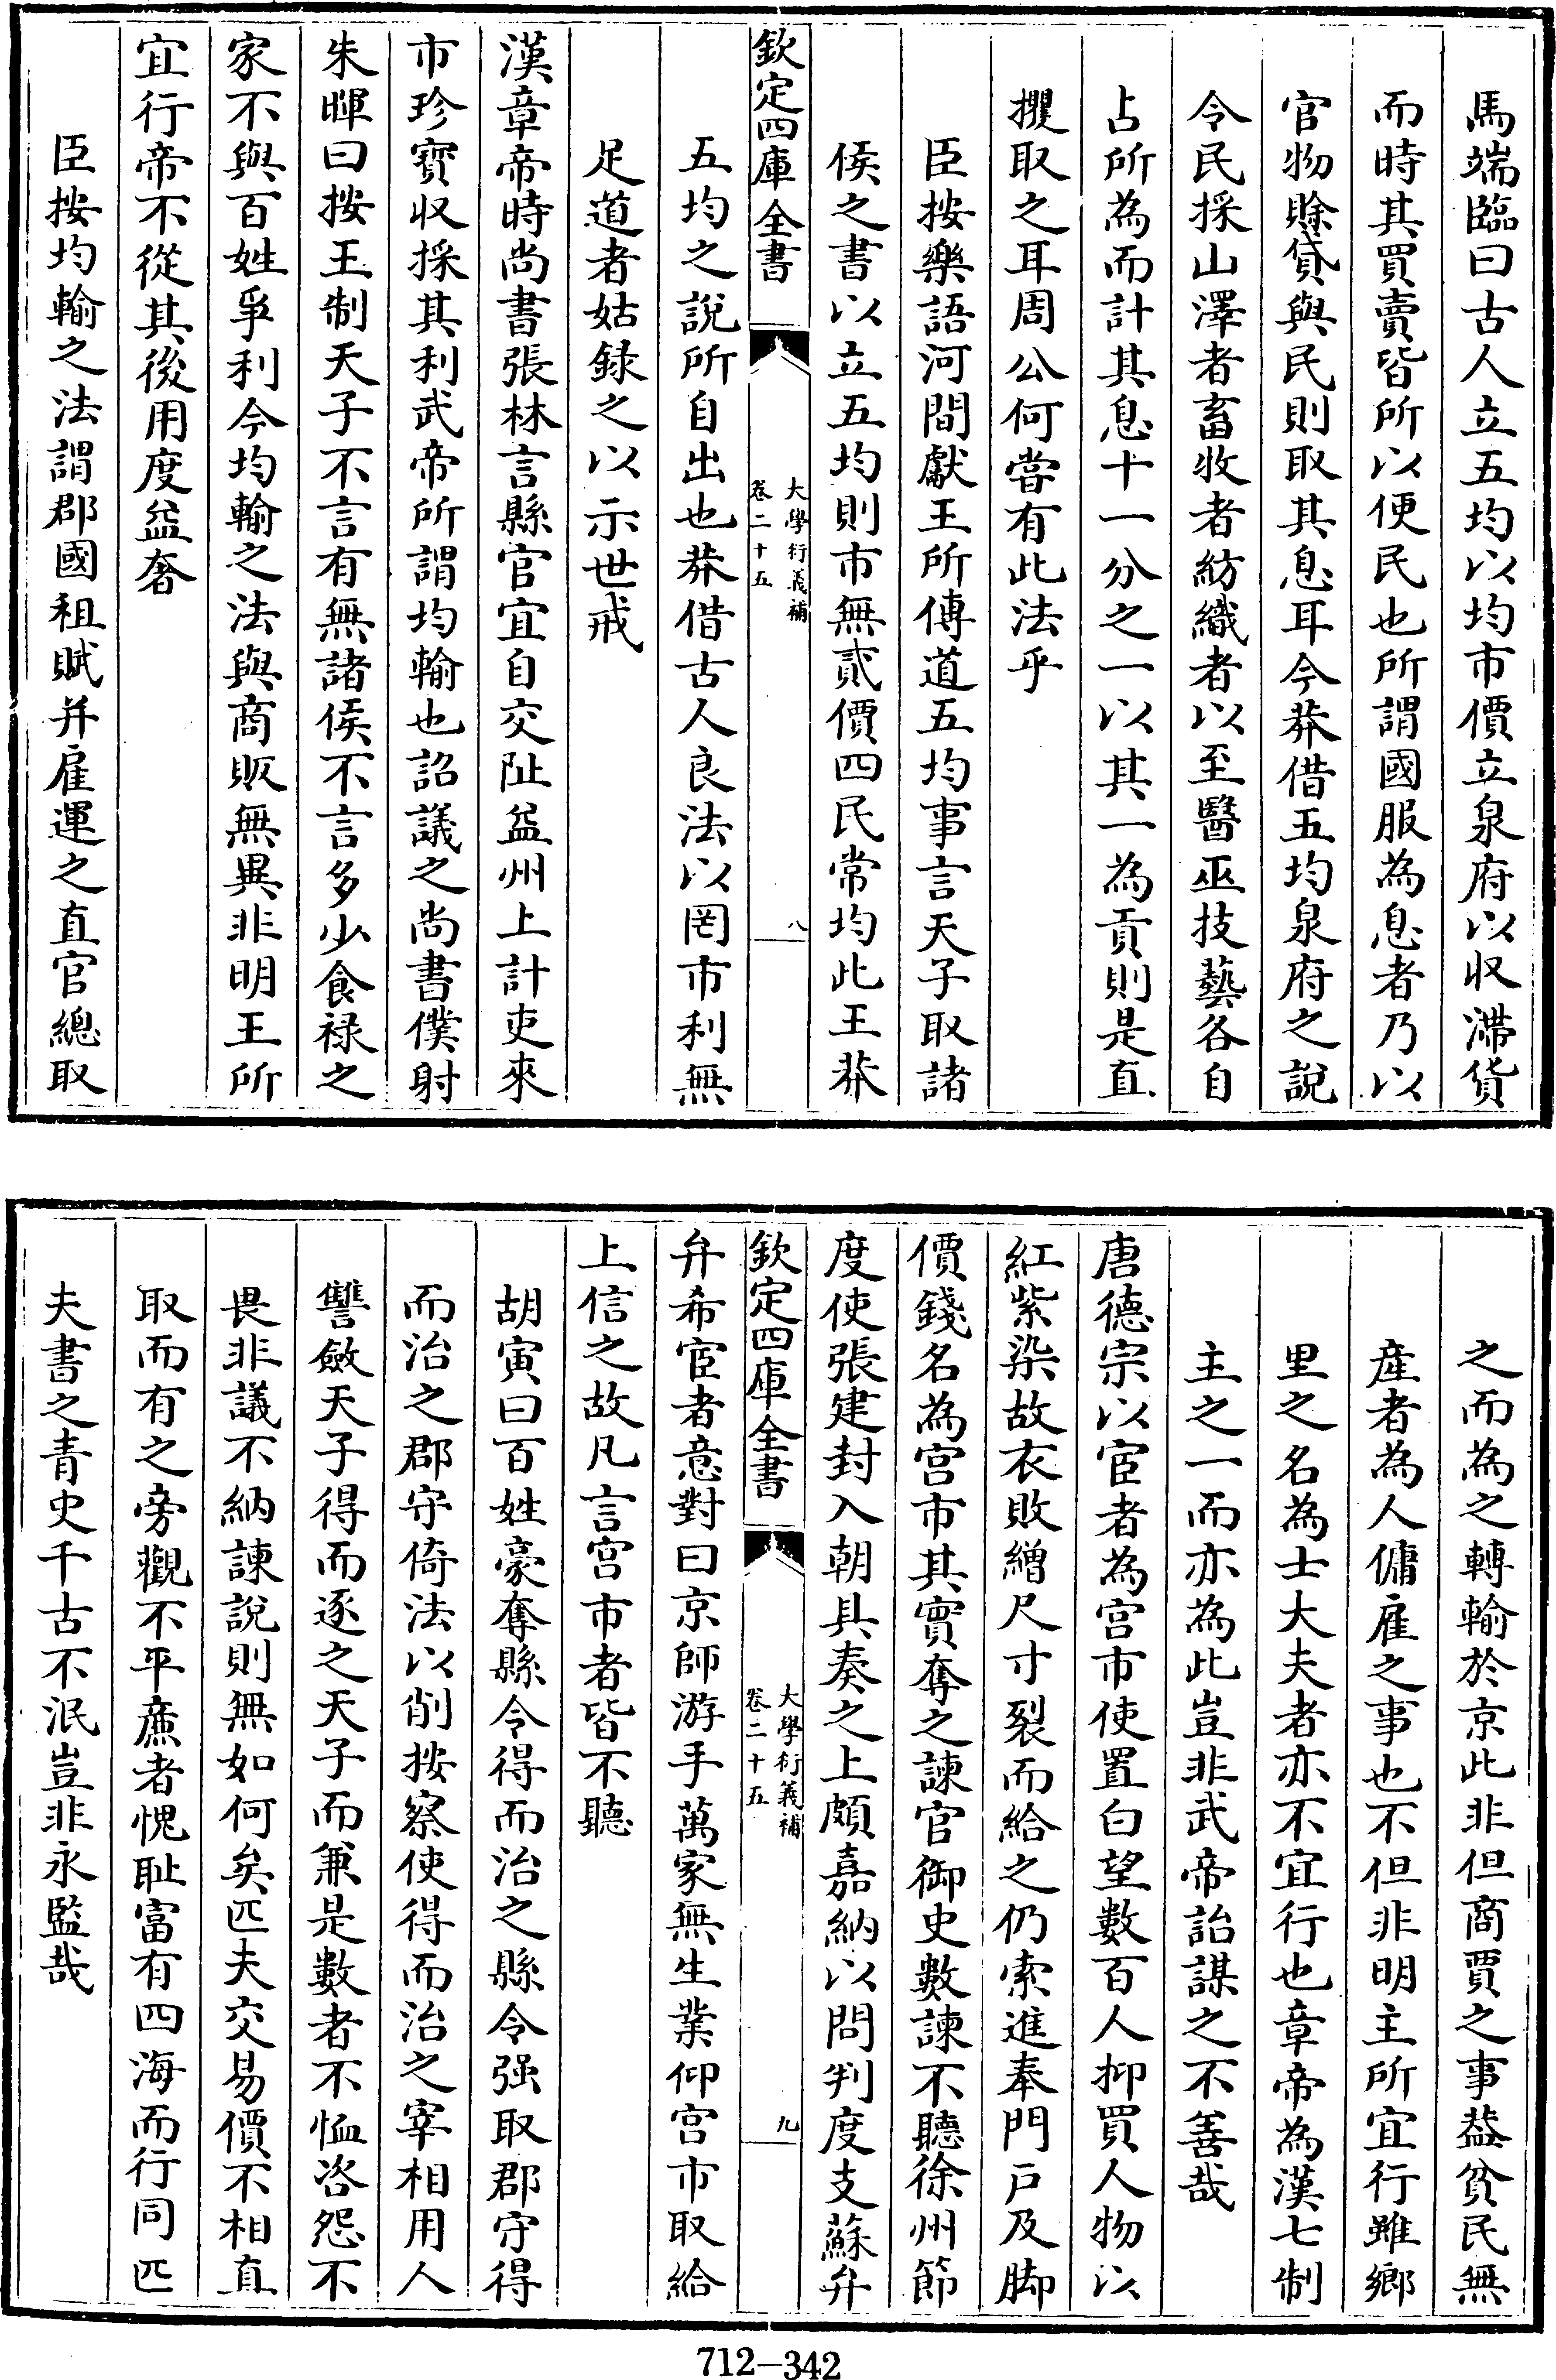 馬端臨曰古人立五均以均市價立泉府以収滯貨
而時其買賣皆所以便民也所謂國服為息者乃以
官物賖貸與民則取其息耳今莽借五均泉府之說
令民採山澤者畜牧者紡織者以至醫巫技藝各自
占所為而計其息十一分之一以其一為貢則是直
攫取之耳周公何嘗有此法乎
臣按樂語河間獻王所傳道五均事言天子取諸
侯之書以立五均則市無貳價四民常均此王莽
欽定四庫全書
大學衍義補
卷二十五
八
五均之說所自出也莽借古人良法以罔市利無
足道者姑録之以示世戒
漢章帝時尚書張林言縣官宜自交阯益州上計吏來
市珍寳収採其利武帝所謂均輸也詔議之尚書僕射
朱暉曰按王制天子不言有無諸侯不言多少食禄之
家不與百姓爭利今均輸之法與商販無異非明王所
宜行帝不從其後用度益奢
臣按均輸之法謂郡國租賦并雇運之直官總取
之而為之轉輸於京此非但商賈之事葢貧民無
産者為人傭雇之事也不但非明主所宜行雖鄉
里之名為士大夫者亦不宜行也章帝為漢七制
主之一而亦為此豈非武帝詒謀之不善哉
唐德宗以宦者為宫市使置白望數百人抑買人物以
紅紫染故衣敗繒尺寸裂而給之仍索進奉門戸及脚
價錢名為宫市其實奪之諫官御史數諫不聽徐州節
度使張建封入朝具奏之上頗嘉納以問判度支蘇弁
欽定四庫全書
大學衍義補
卷二十五
九
弁希宦者意對曰京師游手萬家無生業仰宫市取給
上信之故凡言宫市者皆不聽
胡寅曰百姓豪奪縣令得而治之縣令强取郡守得
而治之郡守倚法以削按察使得而治之宰相用人
讐斂天子得而逐之天子而兼是數者不恤咨怨不
畏非議不納諫說則無如何矣匹夫交易價不相直
取而有之旁觀不平亷者愧耻富有四海而行同匹
夫書之青史千古不泯豈非永監哉
712-342